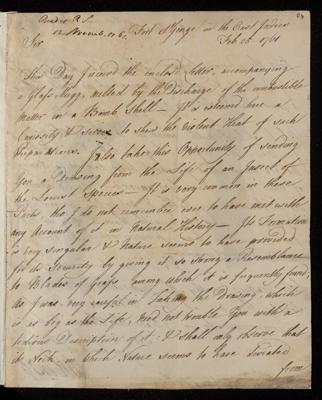 Read at R.S.
12 Novemb. 1761.
Fort St. George in the East Indies
Sir
Feb 25. 1761
This Day I received the inclosed Letter accompanying
a Glass Mugg, melted by the Discharge of the combustible
Matter in a Bomb Shell — It is esteemed here a
Curiosity & serves to shew the violent Heat of such
Preparations. I also take this Opportunity of sending
You a Drawing from the Life of an Insect of
the Locust Species — It is very common in these
Parts, tho' I do not remember ever to have met with
any Account of it in Natural History — Its Formation
is very singular & Nature seems to have provided
for its Security by giving it so strong a Resemblance
to Blades of Grass, among which it is frequently found;
As I was very careful in Taking the Drawing, which
is as big as the Life, I need not trouble You with a
tedious Description of it; & shall only observe that
its Neck, in which Nature seems to have deviated
from